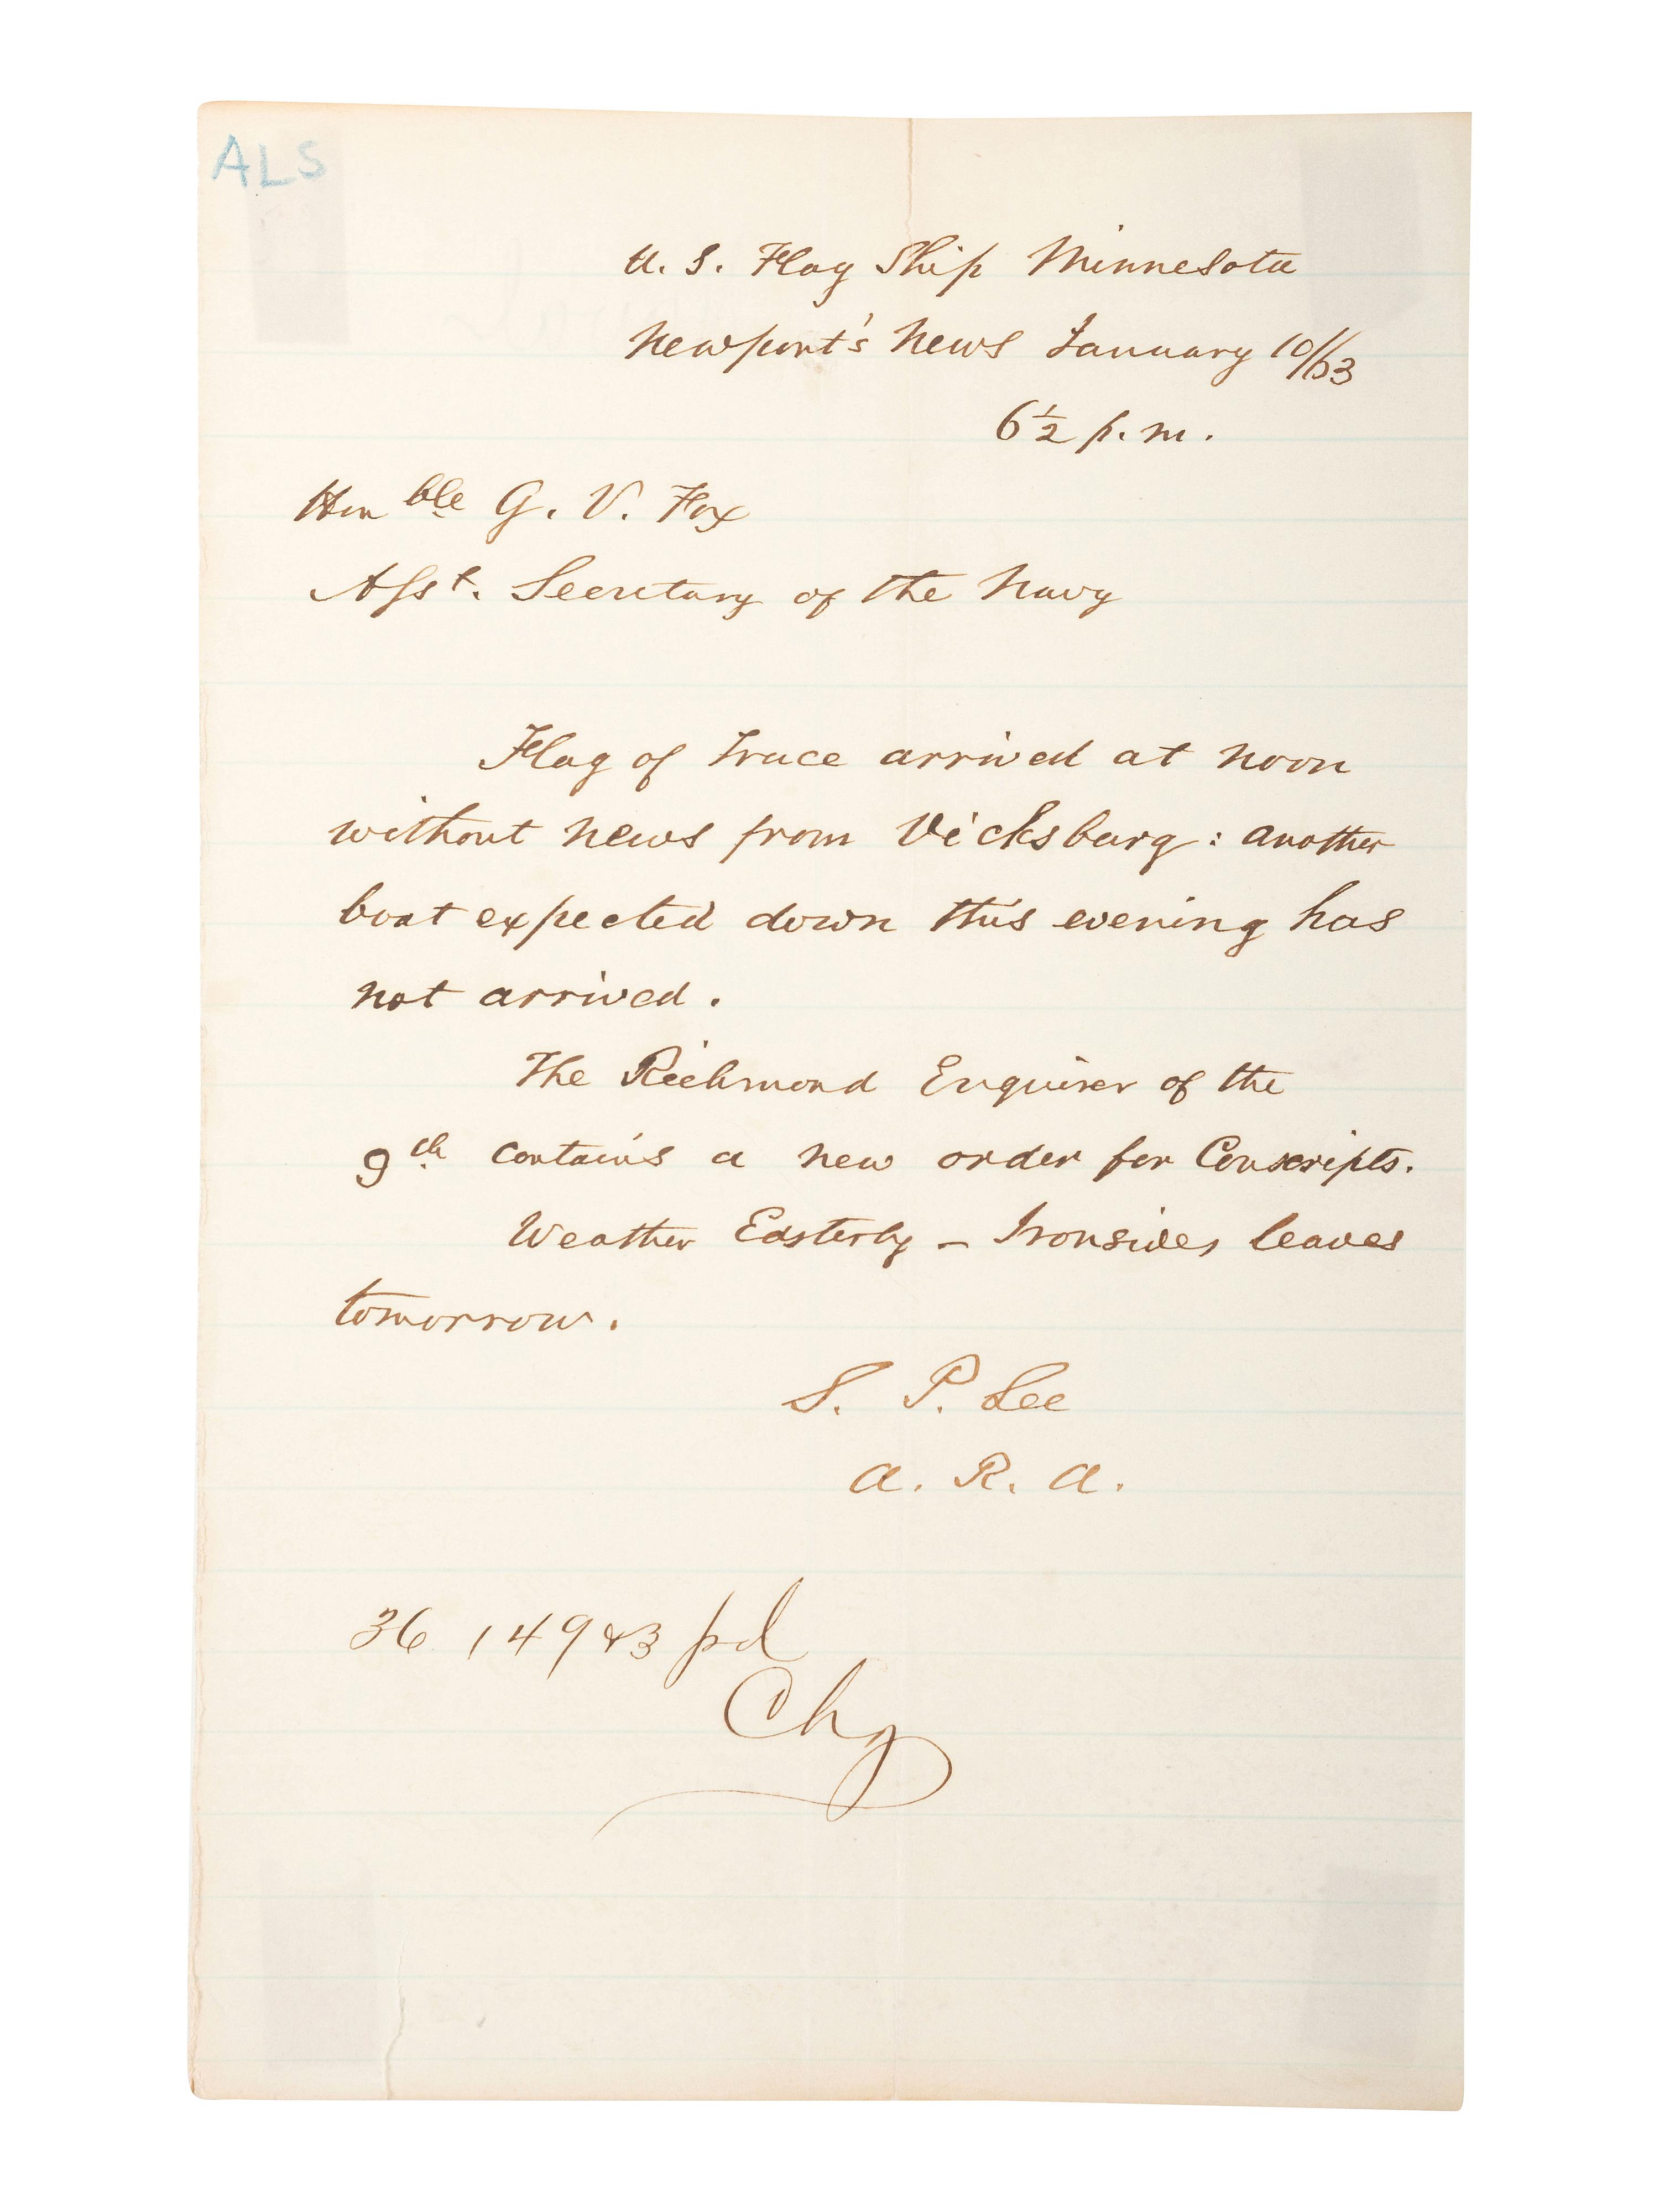 ALS
U. S. Flag Ship Minnesota
Newport's News January 10/63
6½ p.m.
Honble G. V. Fox
Asst. Secretary of the Navy
Flag of Truce arrived at noon
without news from Vicksburg: another
boat expected down this evening has
not arrived.
The Richmond Enquirer of the
9th contains a new order for Conscripts.
Weather Easterly – Ironsides leaves
tomorrow.
S. P. Lee
A. R. A.
36 149 &3 pd
Chg